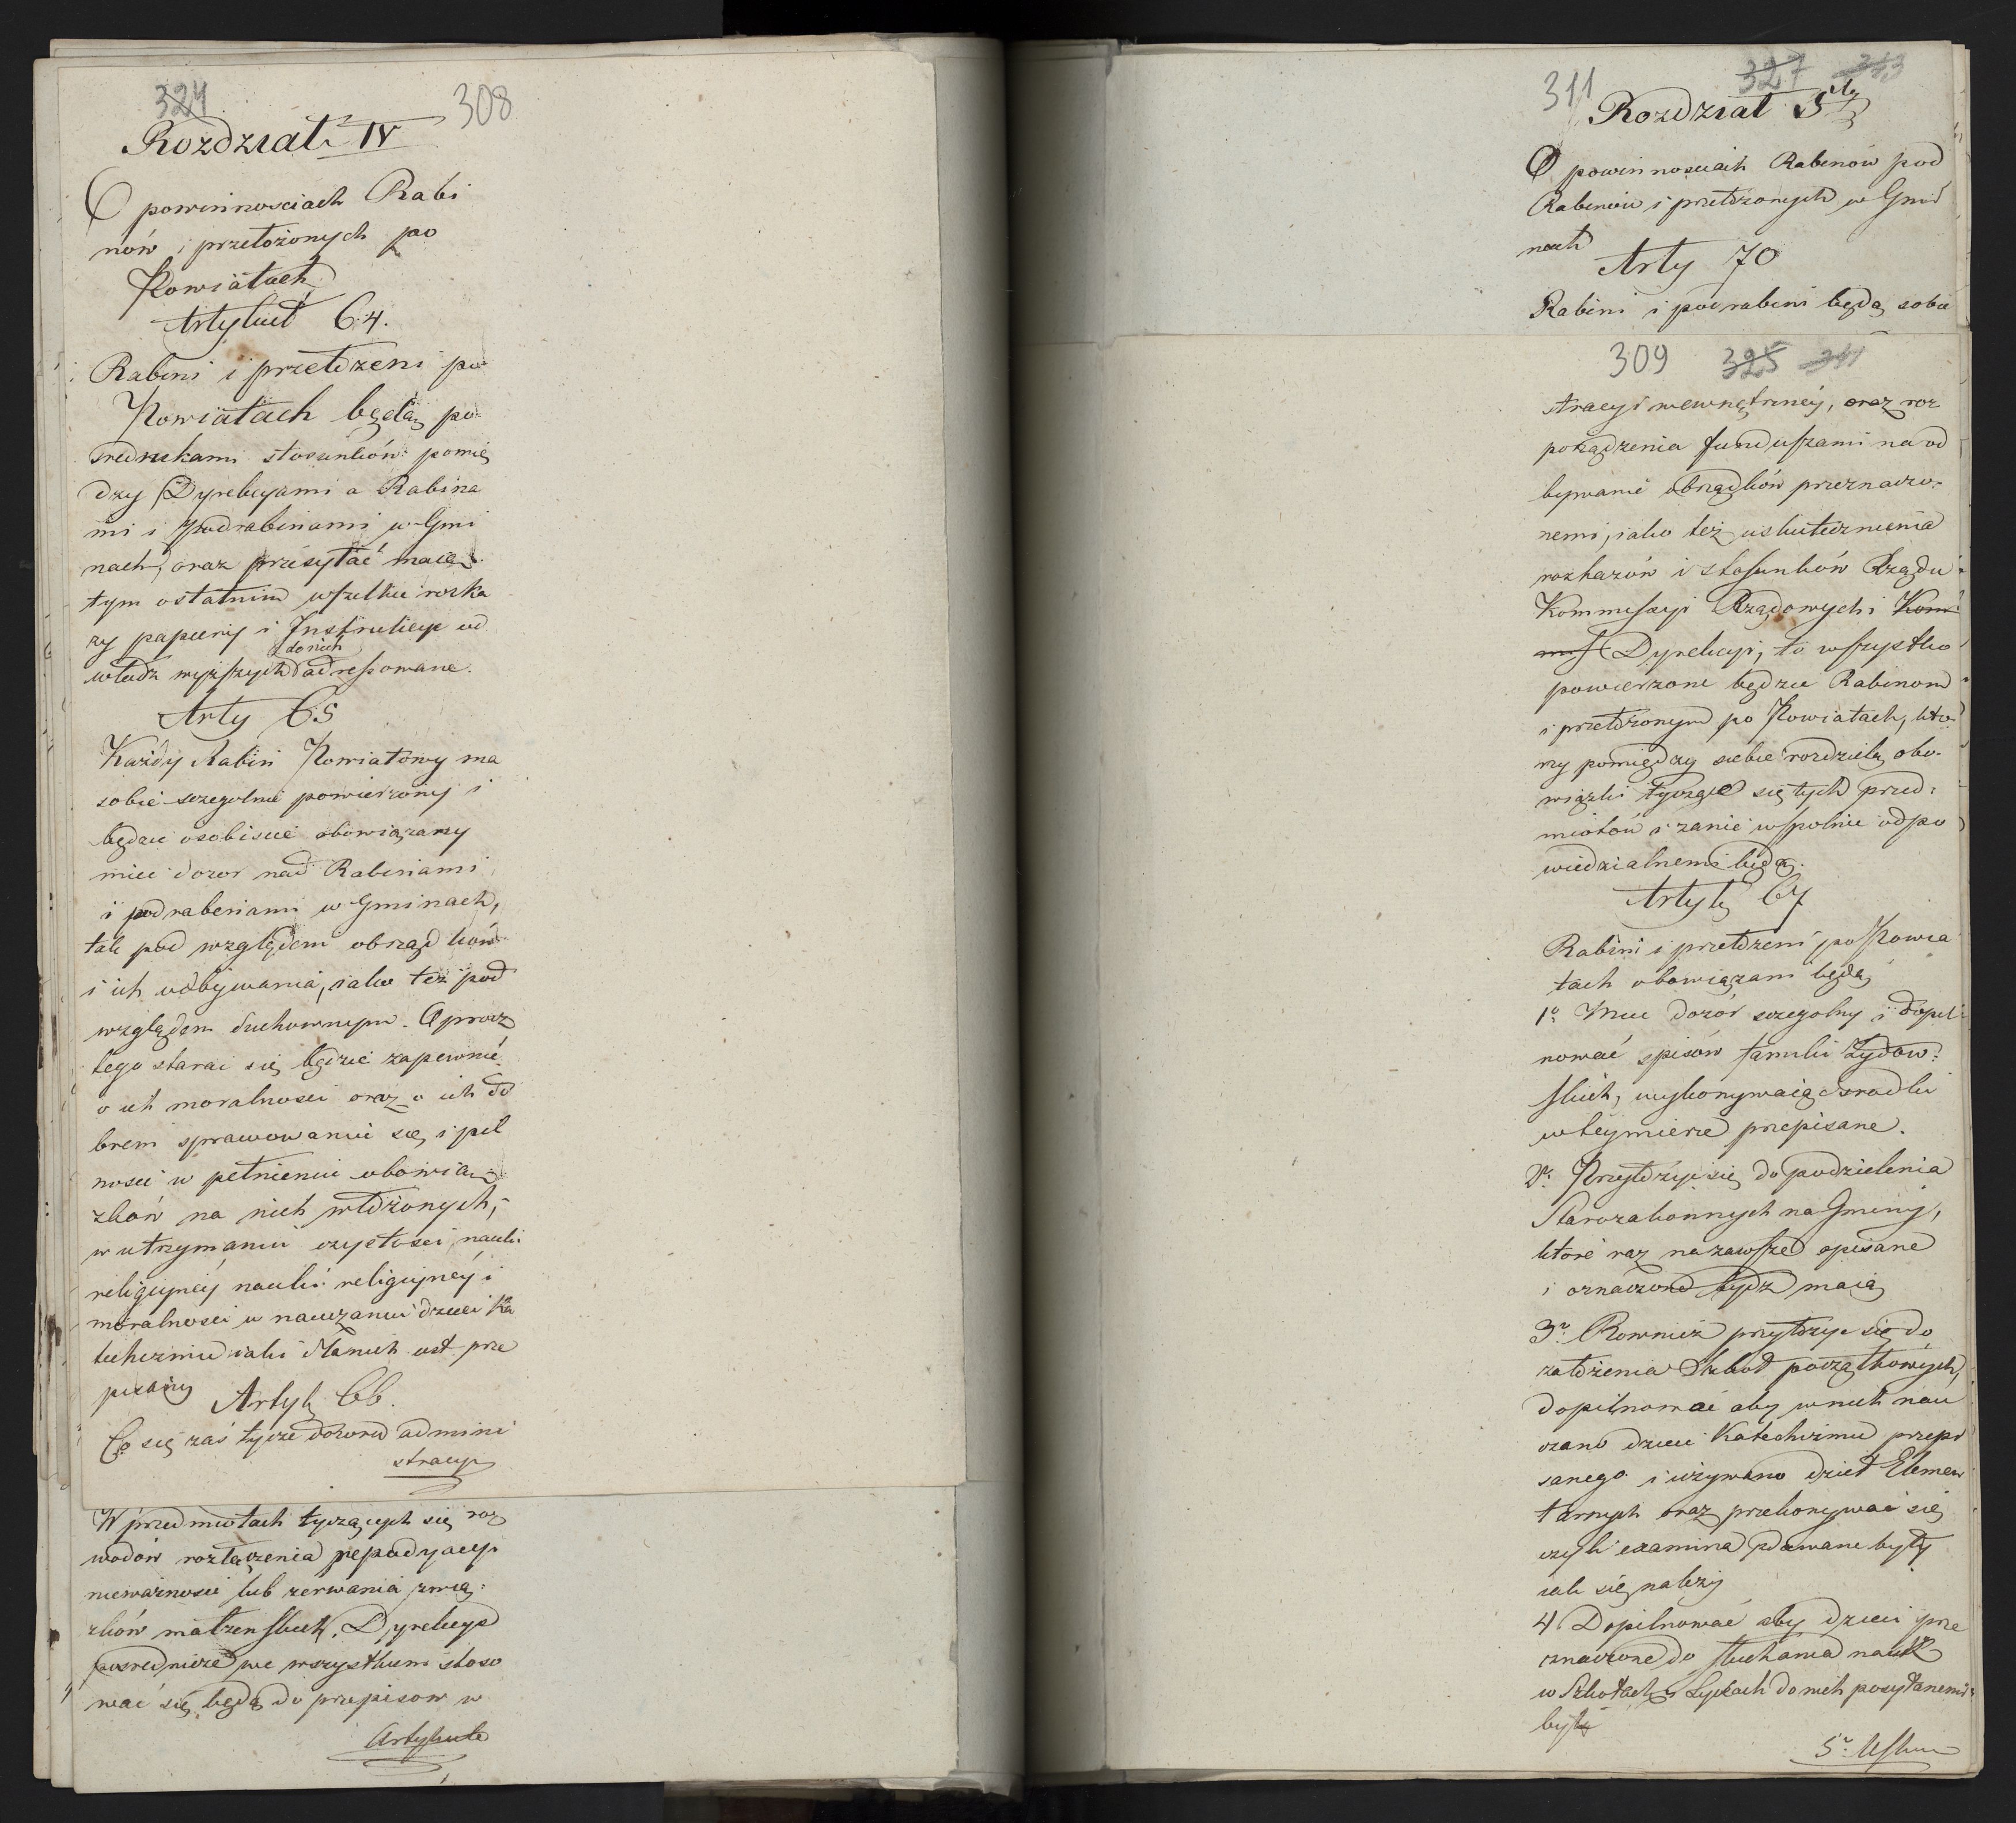 324 308
Rozdział IV
O powinnosciach Rabi
nów i przełożonych po
Powiatach
Artykuł 64.
Rabini i przełożeni po
Powiatach będą po
srednikami stosunków pomię
dzy Dyrekcyami a Rabina
mi i Podrabinami w Gmi
nach, oraz przesyłać maią
tym ostatnim wszelkie roska
zy papiery i Instrukcye od
do nich
władz wyższych adressowane.
Arty 65
Każdy Rabin Powiatowy ma
sobie szczegolnie powierzony i
będzie osobiscie obowiązany
miec dozor nad Rabinami
i podrabinami w Gminach,
tak pod względem obrządków
i ich odbywania, iako też pod
względem duchownym. Oprocz
tego starac się będzie zapewnić
o ich moralnosci oraz o ich do
brem sprawowaniu się i pil
nosci w pełnieniu obowią
zków na nich włożonych,
w utrzymaniu czystosci nauki
religijney nauki religijney i
moralnosci w nauczaniu dzieci Ka
techizmu iaki dla nich iest prze
pisany
Artyk 66.
Co się zaś tycze dozoru admini
stracyi
W przedmiotach tyczących się roz
wodów rozłączenia repudyacyi
nieważnosci lub zerwania zwią
zków małzenskich, Dyrekcye
posrednicze we wszystkiem stoso
wać się będą do przepisow w
Artykule
311 327 313
Rozdział 5ty
O powinnosciach Rabinów pod
Rabinów i przełożonych w Gmi
nach
Arty 70
Rabini i podrabini będą sobie
309 325 311
stracyi wewnętrzney, oraz roz
porządzenia funduszami na od
bywanie obrządków przeznaczo
nemi, iako też uskutecznienia
rozkazów i stosunków Rządu
Kommissyi Rządowych i Kom
miss Dyrekcyi, to wszystko
powierzone będzie Rabinom
i przełożonym po Powiatach, któ
rzy pomiędzy siebie rozdzielą obo
wiązki tyczące się tych przed
miotów i zanie wspolnie odpo
wiedzialnemi będą.
Artyk 67
Rabini i przełożeni po Powia
tach obowiązani będą
1o Miec dozór szczegolny i dopil
nować spisów familii Żydow
skich, wykonywaiąc srodki
w teymierze przepisane.
2o Przyłożyć się do podzielenia
Starozakonnych na Gminy,
które raz na zawsze spisane
i oznaczone bydz maią
3o Rownież przyłożyć się do
założenia Szkół początkowych,
dopilnować aby w nich nau
czano dzieci Katechizmu przepi
sanego i używano dzieł Elemen
tarnych oraz przekonywać się
czyli examina zdawane były
iak się należy
4 Dopilnować aby dzieci prze
znaczone do słuchania nauk
w Szkołach i Lyceach do nich posyłanemi
były
5o Usku